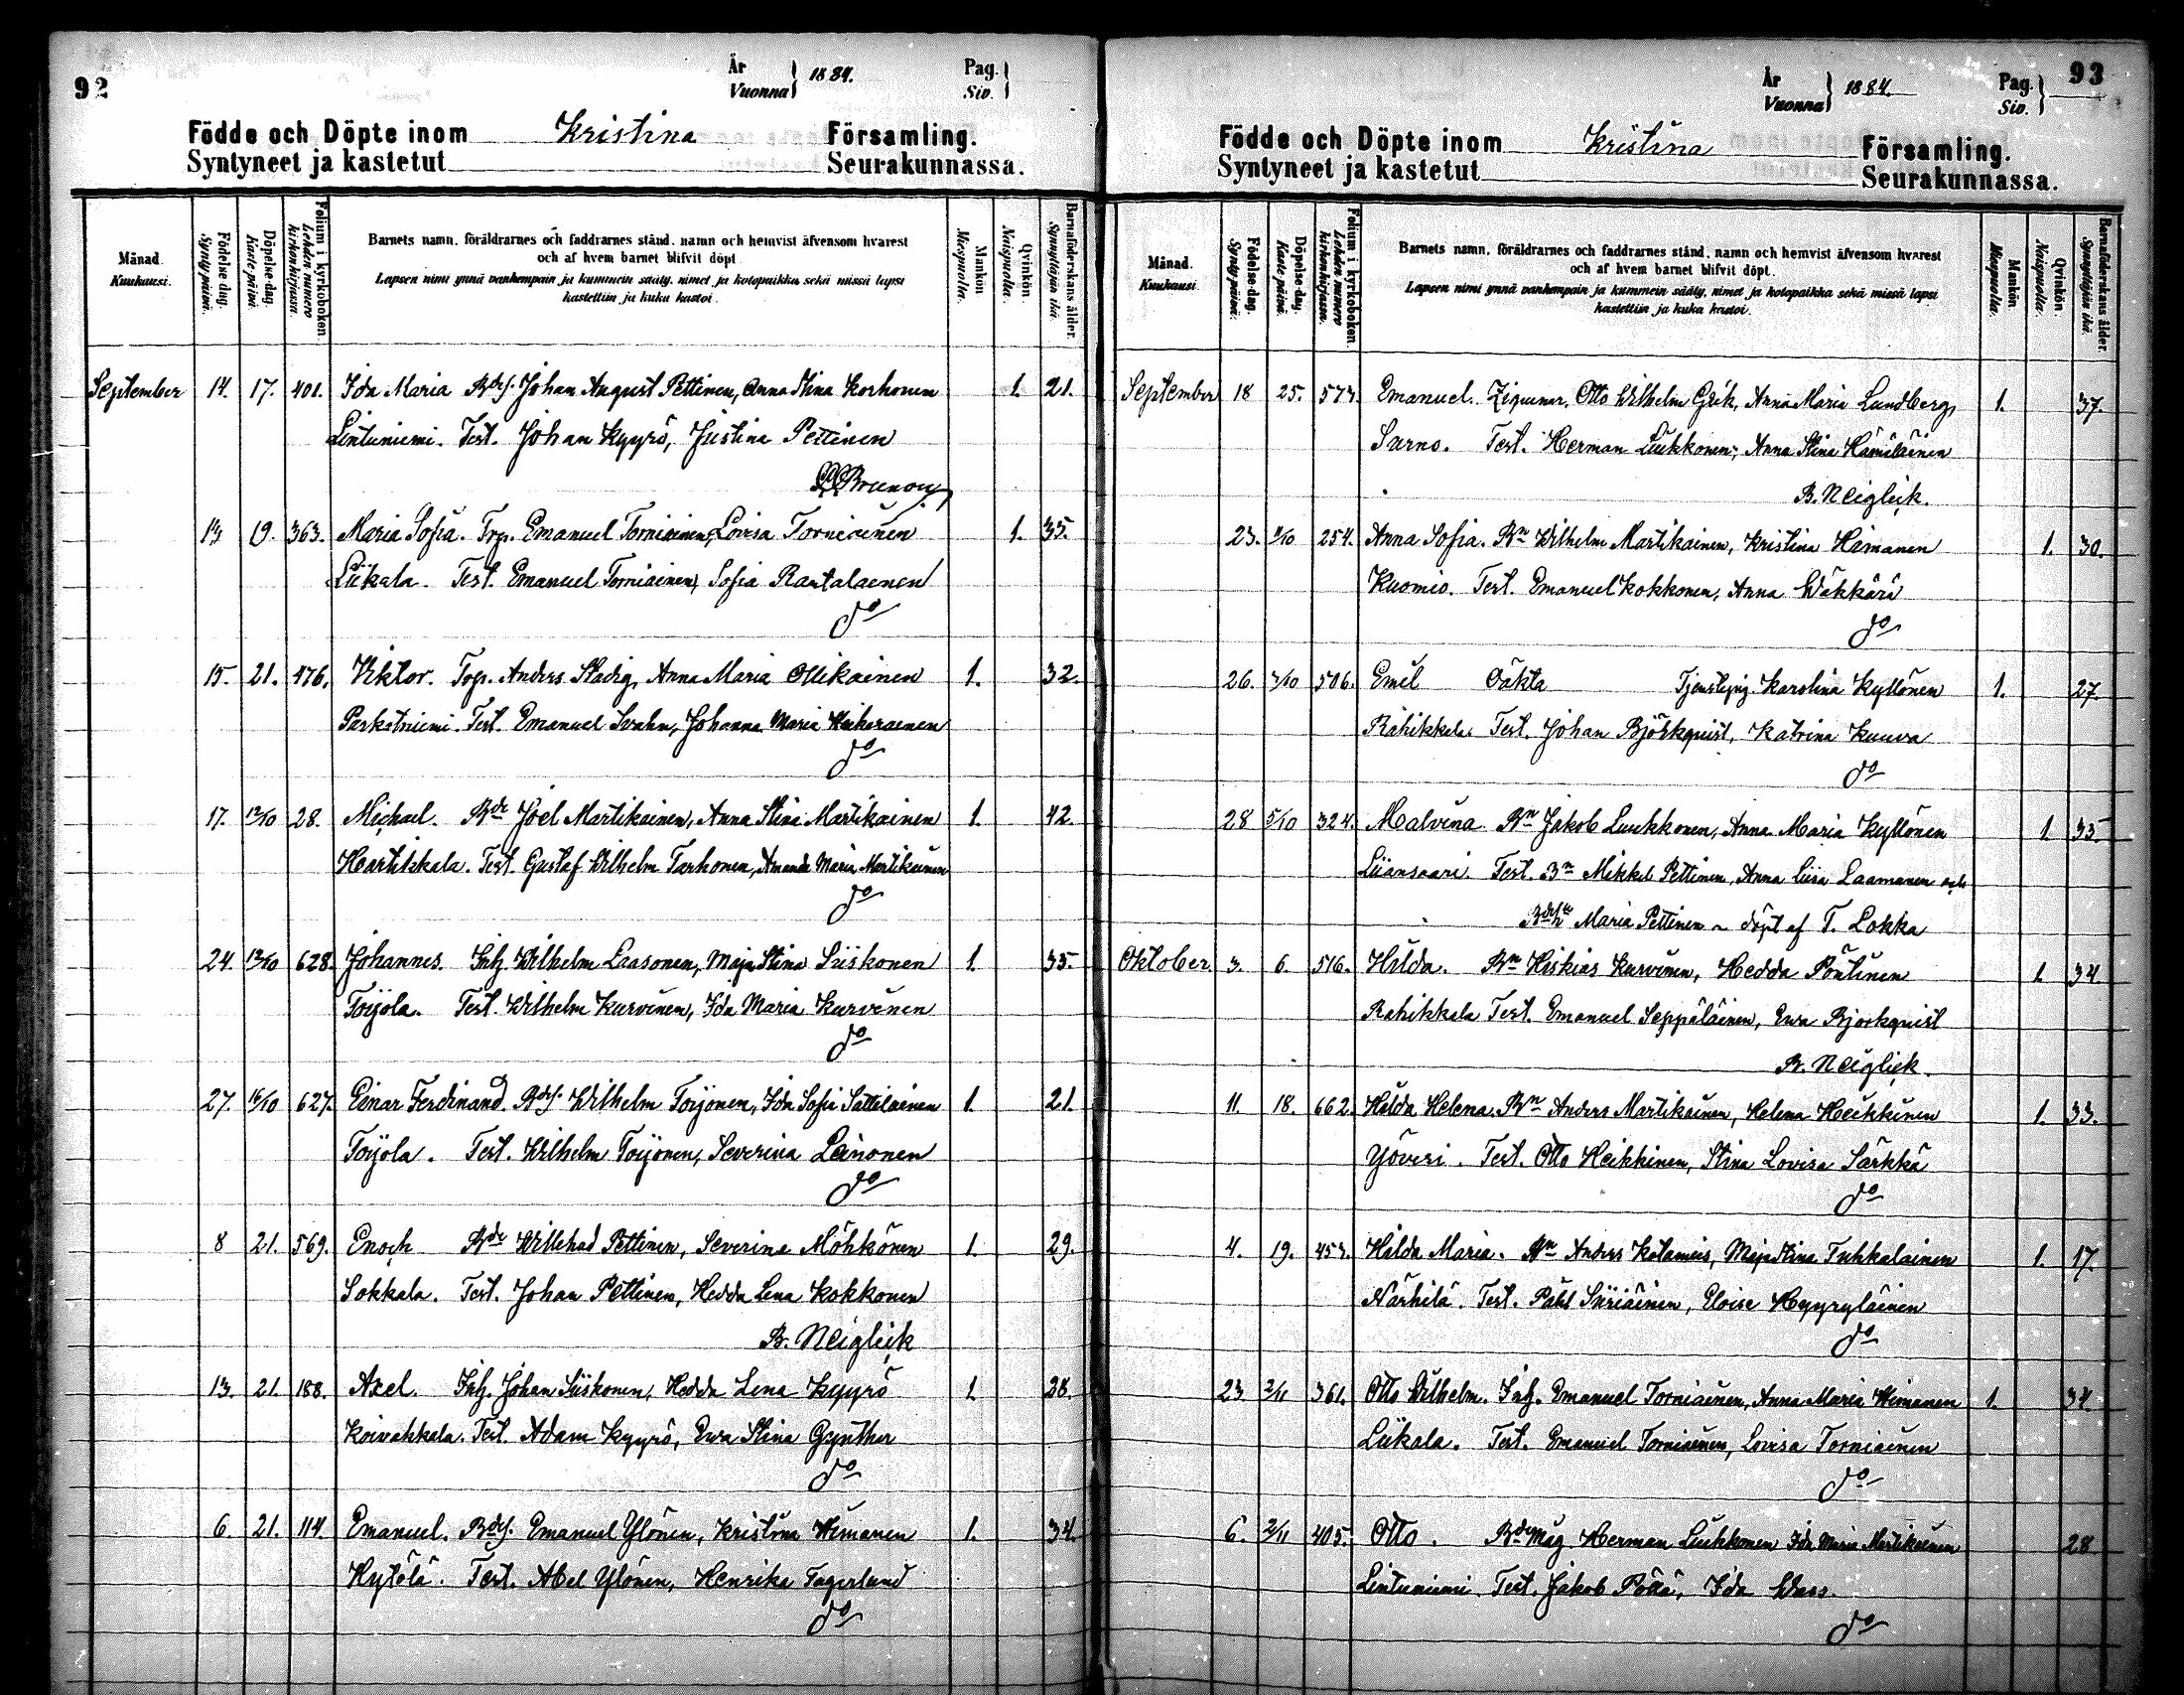 92
År
Vuonna
1884.
Pag.
Siv.
Födde och Döpte inom Kristina Församling.
Syntyneet ja kastetut Seurakunnassa.
Månad.
Kuukausi.
Födelse dag.
Synty päivä.
Döpelse dag.
Kaste päivä.
Folium i kyrkoboken.
Lehden numero kirkonkirjassa.
Barnets namn, föräldrarnes och faddrarnes stånd, namn och hemvist äfvensom hvarest
och af hvem barnet blifvit döpt.
Lapsen nimi ynnä vanhempain ja kummein sääty, nimet ja kotopaikka sekä missä lapsi
kastettiin ja kuka kastoi.
Mankön.
Miespuolta.
Qvinkön.
Naispuolta.
Barnaföderskans ålder.
Synnyttäjän ikä.
September 14. 17. 401. Ida Maria Bdsf. Johan August Pettinen, Anna Stina Korhonen 1. 21.
Lintuniemi. Test. Johan Kyyrö, Justina Pettinen
13 19. 363. Maria Sofia. Trp. Emanuel Torniainen, Lovisa Torniainen 1. 35.
Liikala. Test. Emanuel Torniainen, Sofia Rantalainen
do
15. 21. 476. Viktor. Trp. Anders Stadig, Anna Maria Ollikainen 1. 32.
Test. Emanuel Svahn, Johanna Maria
do
17. 12/10 28. Michael. Bde Joel Martikainen, Anna Stina Martikainen 1. 42.
Hartikkala. Test. Gustaf Wilhelm Tarhonen, Amanda Maria Martikainen
do
24. 12/10 628. Johannes. Inh. Wilhelm Laasonen, Maja Stina Siiskonen 1. 35.
Toijola. Test. Wilhelm Kurvinen, Ida Maria Kurvinen
do
27. 16/10 627. Einar Ferdinand. Bdsf. Wilhelm Toijonen, Ida Sofia Sattilainen 1. 21.
Toijola. Test. Wilhelm Toijonen, Severina Leinonen
do
8 21. 569. Enoch Bde Willehad Pettinen, Severina Möhkönen 1. 29.
Sokkala. Test. Johan Pettinen, Hedda Lena Kokkonen
B. Neiglick
13. 21. 188. Axel. Inh. Johan Siiskonen, Hedda Lena Kyyrö 1. 28.
Koivakkala. Test. Adam Kyyrö, Ewa Stina Gynther
do
6. 21. 114. Emanuel. Bdsf. Emanuel Ylönen, Kristina Himanen 1. 34.
Hytölä. Test. Abel Ylönen, Henrika Fagerlund
do
93
År
Vuonna
1884.
Pag.
Siv.
Födde och Döpte inom Kristina Församling.
Syntyneet ja kastetut Seurakunnassa.
Månad.
Kuukausi.
Födelse dag.
Synty päivä.
Döpelse dag.
Kaste päivä.
Folium i kyrkoboken.
Lehden numero kirkonkirjassa.
Barnets namn, föräldrarnes och faddrarnes stånd, namn och hemvist äfvensom hvarest
och af hvem barnet blifvit döpt.
Lapsen nimi ynnä vanhempain ja kummein sääty, nimet ja kotopaikka sekä missä lapsi
kastettiin ja kuka kastoi.
Mankön.
Miespuolta.
Qvinkön.
Naispuolta.
Barnaföderskans ålder.
Synnyttäjän ikä.
September 18 25. 573. Emanuel. Zigeunar. Otto Wilhelm Grek, Anna Maria Lundberg, 1. 37.
Surno. Test. Herman Liukkonen, Anna Stina Hämäläinen
B. Neiglick.
23. 254. Anna Sofia. Bn Wilhelm Martikainen, Kristina Himanen 1. 30.
Kuomio. Test. Emanuel Kokkonen, Anna Wäkkärä
do
26. 3/10 506. Emil Oäkta Tjenstepig Karolina Kyllönen 1. 27.
Rahikkala. Test. Johan Björkquist, Katrina Kuuva
do
28 5/10 324. Malvina. Bn Jakob Luukkonen, Anna Maria Kyllönen 1 35.
Liiansaari Test. Bn Mikkel Pettinen, Anna Liisa Laamanen och
Maria Pettinen ~ döpt af T. Lokka
Oktober. 3. 6. 516. Hilda. Bn Hiskias Kurvinen, Hedda Pöntinen 1. 34.
Rahikkala Test. Emanuel Seppäläinen, Ewa Björkquist
B. Neiglick.
11. 18. 662. Hilda Helena. Bn Anders Martikainen, Helena Heikkinen 1. 33.
Yöveri. Test. Otto Heikkinen, Stina Lovisa Särkkä
do
4. 19. 453. Hilda Maria. Bn Anders Kotamies, Maja Stina Tuhkalainen 1. 17.
Närhilä. Test. Påhl Siiriäinen, Eloise Hyyryläinen
do
23 2/11 361. Otto Wilhelm. Inh. Emanuel Torniainen, Anna Maria Himanen 1. 34.
Liikala. Test. Emanuel Torniainen, Lovisa Torniainen
do
6. 2/11 405. Otto. Bde Måg Herman Liukkonen Ida Maria Martikainen 28
Lintuniemi Test. Jakob Pöllä, Ida Wass.
do